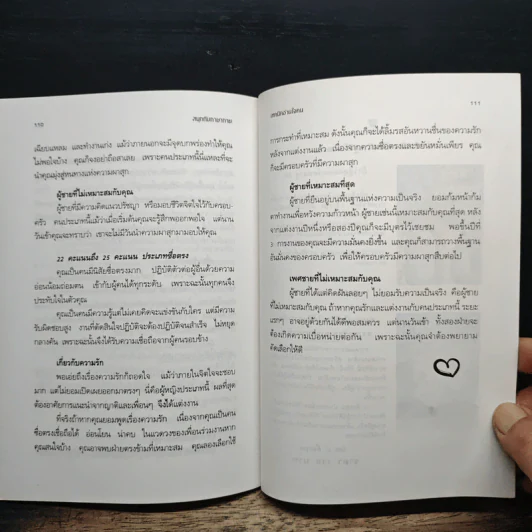 110
สนุกกับการทาย
เฉียบแหลม และทำงานเก่ง แม้ว่าภายนอกจะมีจุดบกพร่องทำให้คุณ
ไม่พอใจบ้าง คุณก็จงอย่าถือสาเลย เพราะคนประเภทนี้แหละที่จะ
นำคุณมุ่งสู่หนทางแห่งความผาสุก
ผู้ชายที่ไม่เหมาะสมกับคุณ
ผู้ชายที่มีความคิดแนวปรัชญา หรือมอบชีวิตจิตใจไว้กับครอบ-
ครัว คนประเภทนี้แม้ว่าเมื่อเริ่มต้นคุณจะรู้สึกพออกพอใจ แต่นาน
วันเข้าคุณจะทราบว่า เขาจะไม่มีวันนำความผาสุกมามอบให้คุณ
22 คะแนนถึง 25 คะแนน ประเภทซื่อตรง
คุณเป็นคนมีนิสัยซื่อตรงมาก ปฏิบัติตัวต่อผู้อื่นด้วยความ
อ่อนน้อมถ่อมตน เข้ากับผู้คนได้ทุกระดับ เพราะฉะนั้นทุกคนจึง
ประทับใจในตัวคุณ
คุณเป็นคนมีความรู้แต่ไม่เคยคิดจะแข่งขันกับใคร แต่มีความ
รับผิดชอบสูง งานที่ตัดสินใจปฏิบัติจะต้องปฏิบัติจนสำเร็จ ไม่หยุด
กลางคัน เพราะฉะนั้นจึงได้รับความเชื่อถือจากผู้คนรอบข้าง
เกี่ยวกับความรัก
พอเอ่ยถึงเรื่องความรักก็ถอดใจ แม้ว่าภายในจิตใจจะชอบ
มาก แต่ไม่ยอมเปิดเผยออกมาตรงๆ นี่คือผู้หญิงประเภทนี้ ผลที่สุด
ต้องอาศัยการแนะนำจากญาติและเพื่อนๆ จึงได้แต่งงาน
ที่จริงถ้าหากคุณยอมพูดเรื่องความรัก เนื่องจากคุณเป็นคน
ซื่อตรงเชื่อถือได้ อ่อนโยน น่าคบ ในแวดวงของเพื่อนร่วมงานหาก
คุณสนใจบ้าง คุณอาจพบฝ่ายตรงข้ามที่เหมาะสม คุณลองเลือกใช้
111
การกระทำที่เหมาะสม ดังนั้นคุณก็จะได้ลิ้มรสอันหวานชื่นของความรัก
หลังจากแต่งงานแล้ว เนื่องจากความซื่อตรงและขยันหมั่นเพียร คุณ
ก็จะมีครอบครัวที่มีความผาสุก
ผู้ชายที่เหมาะสมที่สุด
ผู้ชายที่ยืนอยู่บนพื้นฐานแห่งความเป็นจริง ยอมก้มหน้าก้ม
ตาทำงานเพื่อหวังความก้าวหน้า ผู้ชายเช่นนี้เหมาะสมกับคุณที่สุด หลัง
จากแต่งงานปีหนึ่งหรือสองปีคุณก็จะมีบุตรไว้เชยชม พอขึ้นปีที่
3 การงานของคุณจะมีความมั่นคงยิ่งขึ้น และคุณก็สามารถวางพื้นฐาน
อันมั่นคงของครอบครัว เพื่อให้ครอบครัวมีความผาสุกสืบต่อไป
เพศชายที่ไม่เหมาะสมกับคุณ
ผู้ชายที่ได้แต่คิดฝันลอยๆ ไม่ยอมรับความเป็นจริง คือผู้ชาย
ที่ไม่เหมาะสมกับคุณ ถ้าหากคุณรักและแต่งงานกับคนประเภทนี้ ระยะ
แรกๆ อาจอยู่ด้วยกันได้ดีพอสมควร แต่นานวันเข้า ทั้งสองฝ่ายจะ
ต้องเกิดความเบื่อหน่ายต่อกัน เพราะฉะนั้นคุณจำต้องพยายาม
คัดเลือกให้ดี